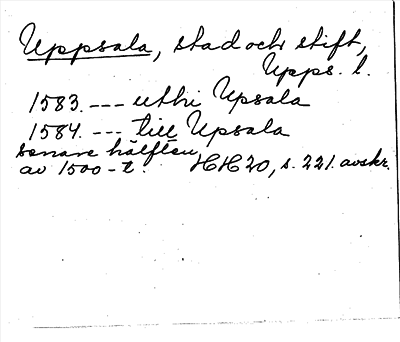 Uppsala, stad och stift,
Upps. l.
1583. --- uthi Upsala
1584. --- till Upsala
senare hälften
av 1500-t. HH 20, s. 221. avskr.